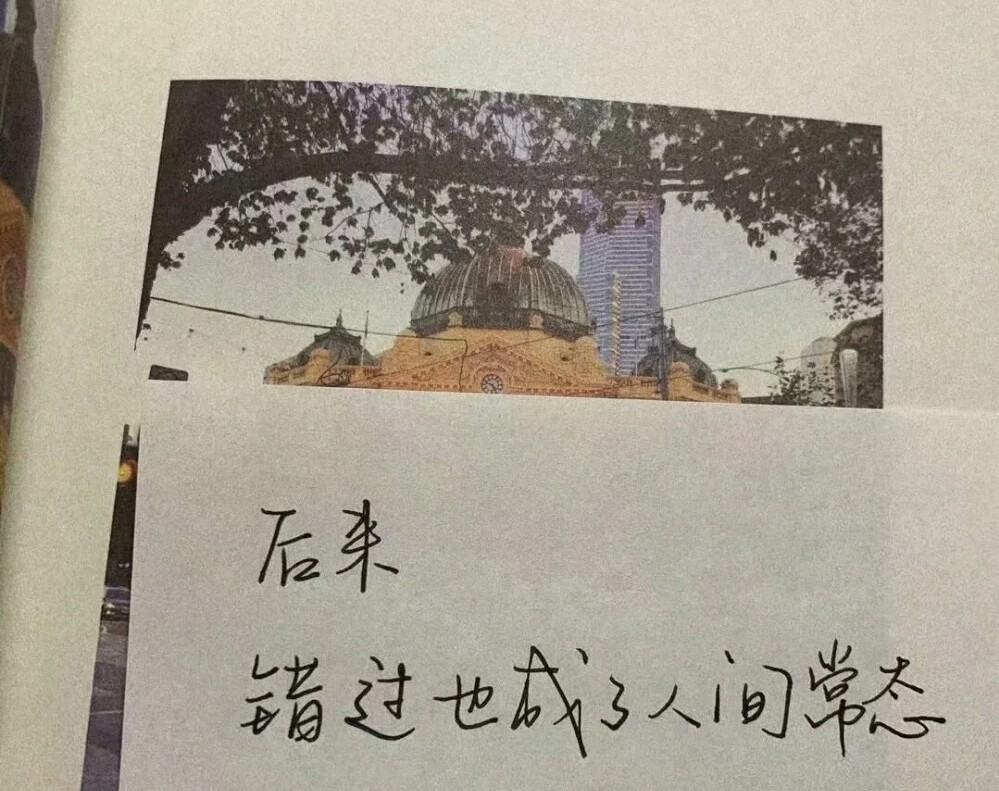 后来
错过也成了人间常态